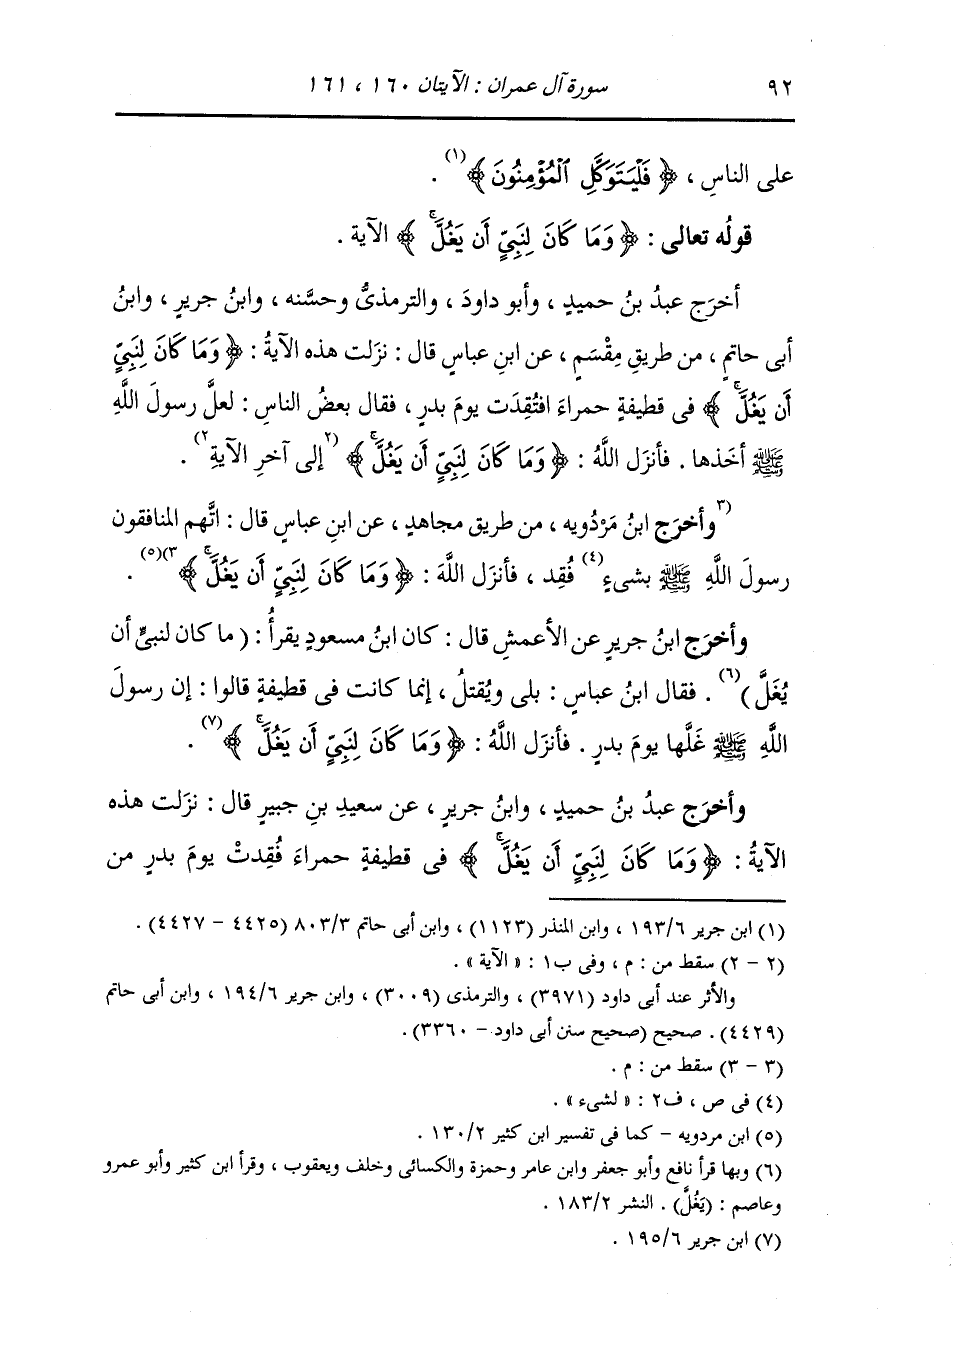 ٩٢ سورة آل عمران : الآيتان ١٦٠ ، ١٦١
على الناسِ ، ﴿ فَلْيَتَوَكَّلِ ٱلْمُؤْمِنُونَ ﴾(١) .
قولُه تعالى : ﴿ وَمَا كَانَ لِنَبِيٍّ أَن يَغُلَّ ۚ ﴾ الآية .
أخرَج عبدُ بنُ حميدٍ ، وأبو داودَ ، والترمذىُّ وحسَّنه ، وابنُ جريرٍ ، وابنُ
أبى حاتمٍ ، من طريقِ مِقْسَمٍ ، عن ابنِ عباسٍ قال : نزَلت هذه الآيةُ : ﴿ وَمَا كَانَ لِنَبِيٍّ
أَن يَغُلَّ ۚ ﴾ فى قطيفةٍ حمراءَ افتُقِدَت يومَ بدرٍ ، فقال بعضُ الناسِ : لعلَّ رسولَ اللَّهِ
ﷺ أخَذها . فأنزَل اللَّهُ : ﴿ وَمَا كَانَ لِنَبِيٍّ أَن يَغُلَّ ۚ ﴾ (٢إلى آخرِ الآيةِ٢) .
(٣وأخرَج ابنُ مَرْدُويه ، من طريق مجاهدٍ ، عن ابنِ عباسٍ قال : اتَّهم المنافقون
رسولَ اللَّهِ ﷺ بشىءٍ(٤) فُقِد ، فأنزَل اللَّهَ : ﴿ وَمَا كَانَ لِنَبِيٍّ أَن يَغُلَّ ۚ ﴾٣)(٥) .
وأخرَج ابنُ جريرٍ عن الأعمشِ قال : كان ابنُ مسعودٍ يقرأُ : ( ما كان لنبىٍّ أن
يُغَلَّ )(٦) . فقال ابنُ عباسٍ : بلى ويُقتلُ ، إنما كانت فى قطيفةٍ قالوا : إن رسولَ
اللَّهِ ﷺ غَلَّها يومَ بدرٍ . فأنزَل اللَّهُ : ﴿ وَمَا كَانَ لِنَبِيٍّ أَن يَغُلَّ ۚ ﴾(٧) .
وأخرَج عبدُ بنُ حميدٍ ، وابنُ جريرٍ ، عن سعيدِ بنِ جبيرٍ قال : نزَلت هذه
الآيةُ : ﴿ وَمَا كَانَ لِنَبِيٍّ أَن يَغُلَّ ۚ ﴾ فى قطيفةٍ حمراءَ فُقِدتْ يومَ بدرٍ من
(١) ابن جرير ١٩٣/٦ ، وابن المنذر (١١٢٣) ، وابن أبى حاتم ٨٠٣/٣ (٤٤٢٥ – ٤٤٢٧) .
(٢ – ٢) سقط من : م ، وفى ب١ : « الآية » .
والأثر عند أبى داود (٣٩٧١) ، والترمذى (٣٠٠٩) ، وابن جرير ١٩٤/٦ ، وابن أبى حاتم
(٤٤٢٩) . صحيح (صحيح سنن أبى داود – ٣٣٦٠) .
(٣ – ٣) سقط من : م .
(٤) فى ص ، ف٢ : « لشىء » .
(٥) ابن مردويه – كما فى تفسير ابن كثير ١٣٠/٢ .
(٦) وبها قرأ نافع وأبو جعفر وابن عامر وحمزة والكسائى وخلف ويعقوب ، وقرأ ابن كثير وأبو عمرو
وعاصم : (يَغُلَّ) . النشر ١٨٣/٢ .
(٧) ابن جرير ١٩٥/٦ .